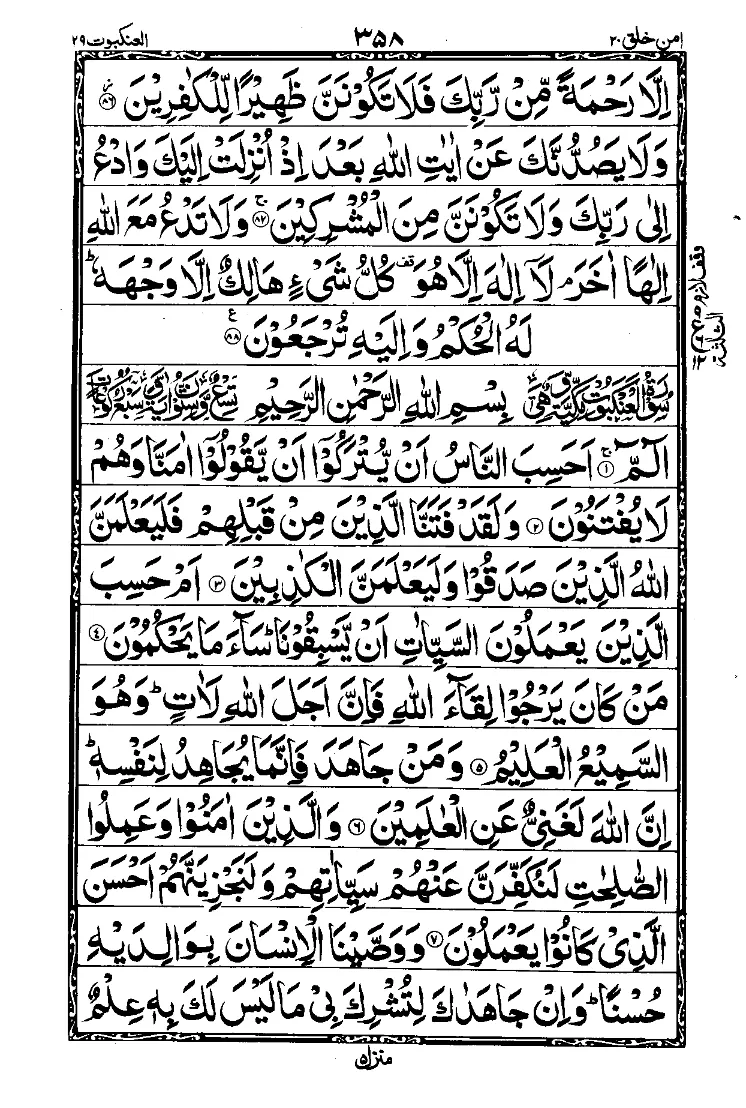 امن خلق ٢٠ ٣٥٨ العنكبوت ٢٩
اِلَّا رَحْمَةً مِّنْ رَّبِّكَ فَلَا تَكُوْنَنَّ ظَهِيْرًا لِّلْكٰفِرِيْنَ ﴿٨٦﴾
وَلَا يَصُدُّنَّكَ عَنْ اٰيٰتِ اللّٰهِ بَعْدَ اِذْ اُنْزِلَتْ اِلَيْكَ وَادْعُ
اِلٰى رَبِّكَ وَلَا تَكُوْنَنَّ مِنَ الْمُشْرِكِيْنَ ۚ﴿٨٧﴾ وَلَا تَدْعُ مَعَ اللّٰهِ
اِلٰهًا اٰخَرَ ۘ لَآ اِلٰهَ اِلَّا هُوَ قف كُلُّ شَيْءٍ هَالِكٌ اِلَّا وَجْهَهٗ ؕ
لَهُ الْحُكْمُ وَاِلَيْهِ تُرْجَعُوْنَ ﴿٨٨﴾ ع
سُوْرَةُ الْعَنْكَبُوْتِ مَكِّيَّةٌ وَّهِيَ بِسْمِ اللّٰهِ الرَّحْمٰنِ الرَّحِيْمِ تِسْعٌ وَّسِتُّوْنَ اٰيَةً وَّسَبْعُ رُكُوْعَاتٍ
الٓمّٓ ۚ﴿١﴾ اَحَسِبَ النَّاسُ اَنْ يُّتْرَكُوْٓا اَنْ يَّقُوْلُوْٓا اٰمَنَّا وَهُمْ
لَا يُفْتَنُوْنَ ﴿٢﴾ وَلَقَدْ فَتَنَّا الَّذِيْنَ مِنْ قَبْلِهِمْ فَلَيَعْلَمَنَّ
اللّٰهُ الَّذِيْنَ صَدَقُوْا وَلَيَعْلَمَنَّ الْكٰذِبِيْنَ ﴿٣﴾ اَمْ حَسِبَ
الَّذِيْنَ يَعْمَلُوْنَ السَّيِّاٰتِ اَنْ يَّسْبِقُوْنَا ؕ سَآءَ مَا يَحْكُمُوْنَ ﴿٤﴾
مَنْ كَانَ يَرْجُوْا لِقَآءَ اللّٰهِ فَاِنَّ اَجَلَ اللّٰهِ لَاٰتٍ ؕ وَهُوَ
السَّمِيْعُ الْعَلِيْمُ ﴿٥﴾ وَمَنْ جَاهَدَ فَاِنَّمَا يُجَاهِدُ لِنَفْسِهٖ ؕ
اِنَّ اللّٰهَ لَغَنِيٌّ عَنِ الْعٰلَمِيْنَ ﴿٦﴾ وَالَّذِيْنَ اٰمَنُوْا وَعَمِلُوا
الصّٰلِحٰتِ لَنُكَفِّرَنَّ عَنْهُمْ سَيِّاٰتِهِمْ وَلَنَجْزِيَنَّهُمْ اَحْسَنَ
الَّذِيْ كَانُوْا يَعْمَلُوْنَ ﴿٧﴾ وَوَصَّيْنَا الْاِنْسَانَ بِوَالِدَيْهِ
حُسْنًا ؕ وَاِنْ جَاهَدٰكَ لِتُشْرِكَ بِيْ مَا لَيْسَ لَكَ بِهٖ عِلْمٌ
منزل ٥
وقف لازم
الثلثة